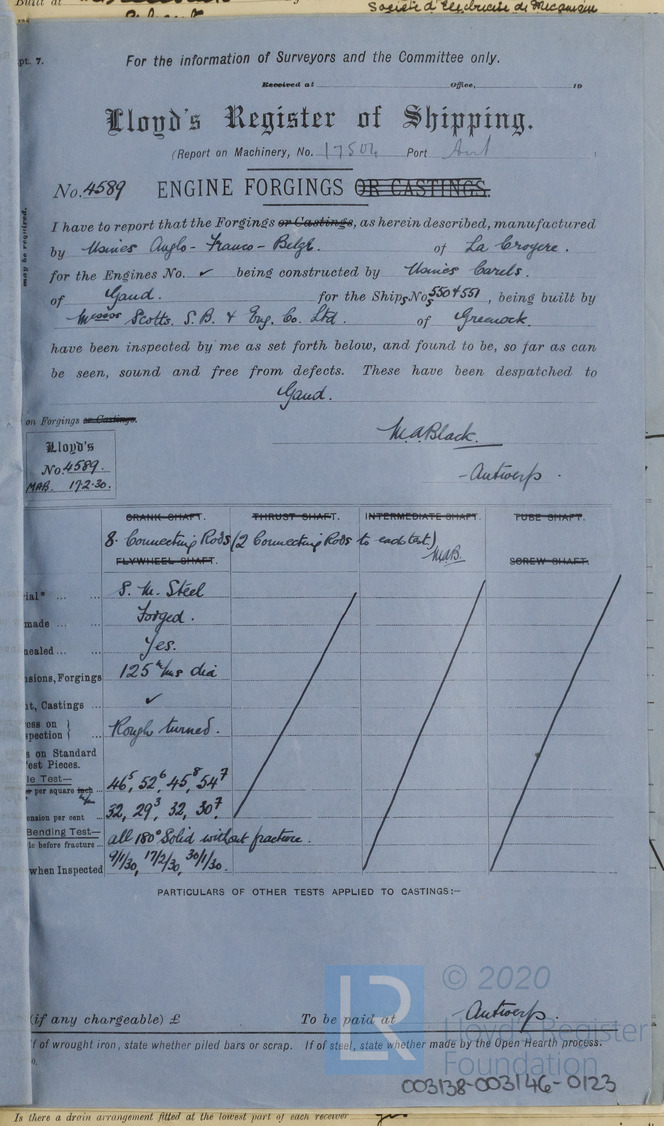 Built at
Société d'Electricité de Mécanique
pt. 7.
For the information of Surveyors and the Committee only.
Received at Office, 19
Lloyd's Register of Shipping.
(Report on Machinery, No. 17504 Port Ant
No. 4589 ENGINE FORGINGS OR CASTINGS.
may be required.
I have to report that the Forgings or Castings, as herein described, manufactured
by Usines Anglo-Franco-Belge. of La Croyere.
for the Engines No. ✓ being constructed by Usines Carels.
of Gand. for the Ships Nos 550 & 551, being built by
Messrs Scotts. S. B. & Eng. Co. Ltd. of Greenock.
have been inspected by me as set forth below, and found to be, so far as can
be seen, sound and free from defects. These have been despatched to
Gand.
on Forgings or Castings.
M.A. Black.
Antwerp.
Lloyd's
No. 4589.
MAB. 17.2.30.
CRANK SHAFT. THRUST SHAFT. INTERMEDIATE SHAFT. TUBE SHAFT.
8. Connecting Rods (2 Connecting Rods to each test)
M.A.B.
FLYWHEEL SHAFT. SCREW SHAFT.
ial* ... ... S. M. Steel
made ... ... Forged.
nealed ... ... Yes.
sions, Forgings 125 m/ms dia
t, Castings ... ✓
ess on }
spection } Rough turned.
s on Standard
Test Pieces.
le Test—
per square inch ... 46⁵, 52⁶, 45⁸, 54⁷
ension per cent ... 32, 29³, 32, 30⁷.
Bending Test—
le before fracture ... all 180° Solid without fracture.
when Inspected 9/1/30, 17/2/30, 30/1/30.
PARTICULARS OF OTHER TESTS APPLIED TO CASTINGS:—
(if any chargeable) £ To be paid at Antwerp.
f of wrought iron, state whether piled bars or scrap. If of steel, state whether made by the Open Hearth process.
LR
© 2020
Lloyd's Register
Foundation
003138-003146-0123
Is there a drain arrangement fitted at the lowest part of each receiver yes